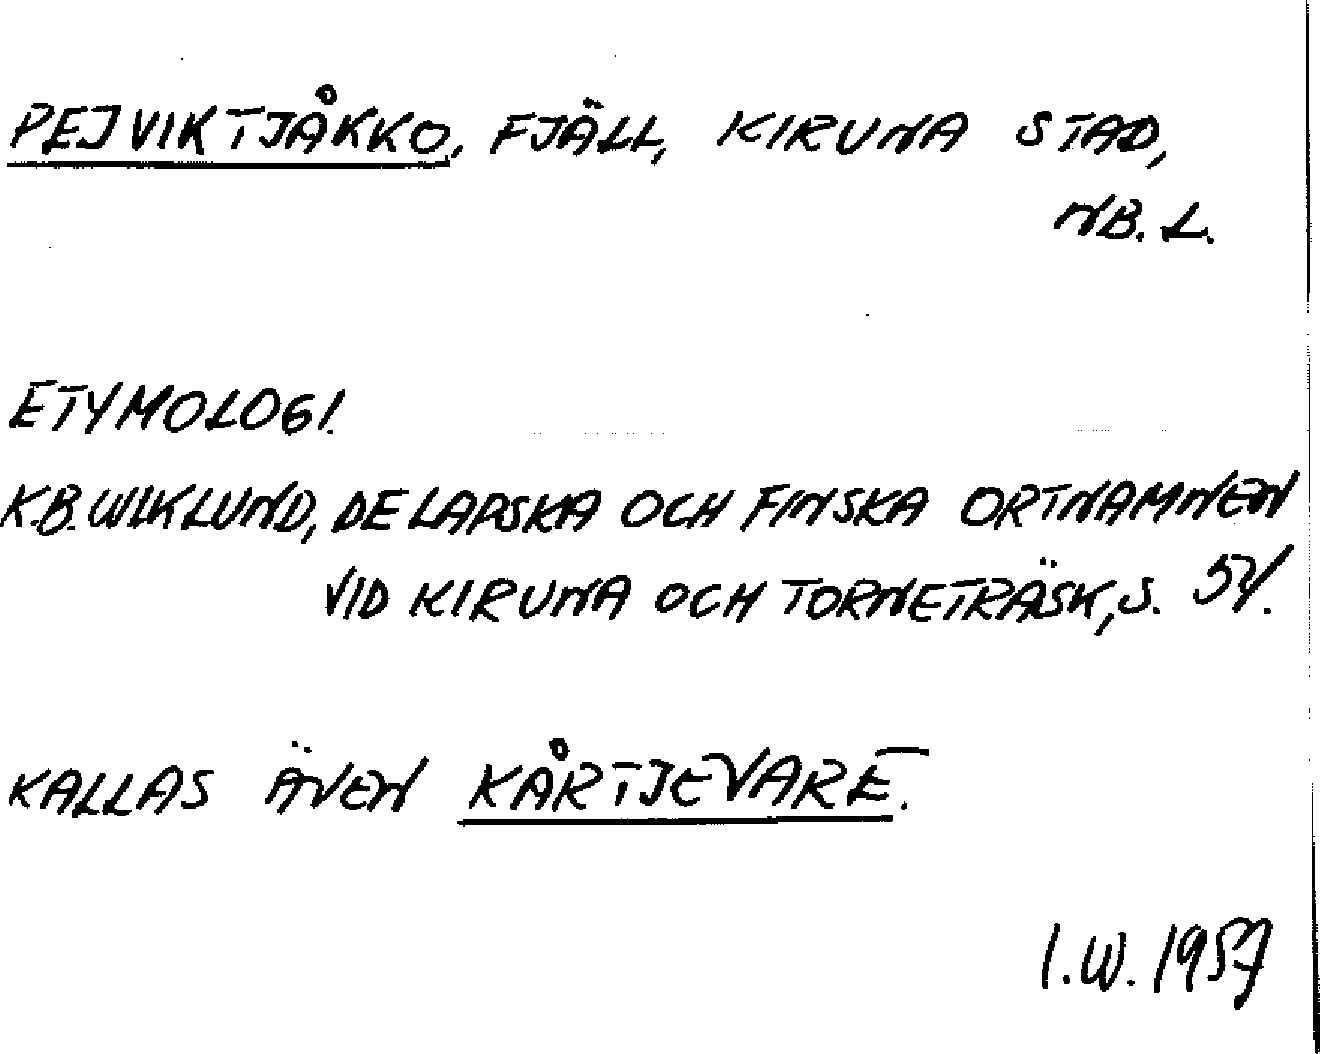 PEJVIKTJÅKKO, FJÄLL, KIRUNA STAD,
NB. L.
ETYMOLOGI.
K.B. WIKLUND, DE LAPSKA OCH FINSKA ORTNAMNEN
VID KIRUNA OCH TORNETRÄSK, S.
KALLAS ÄVEN KÅRTJEVARE.
I. W. 1957